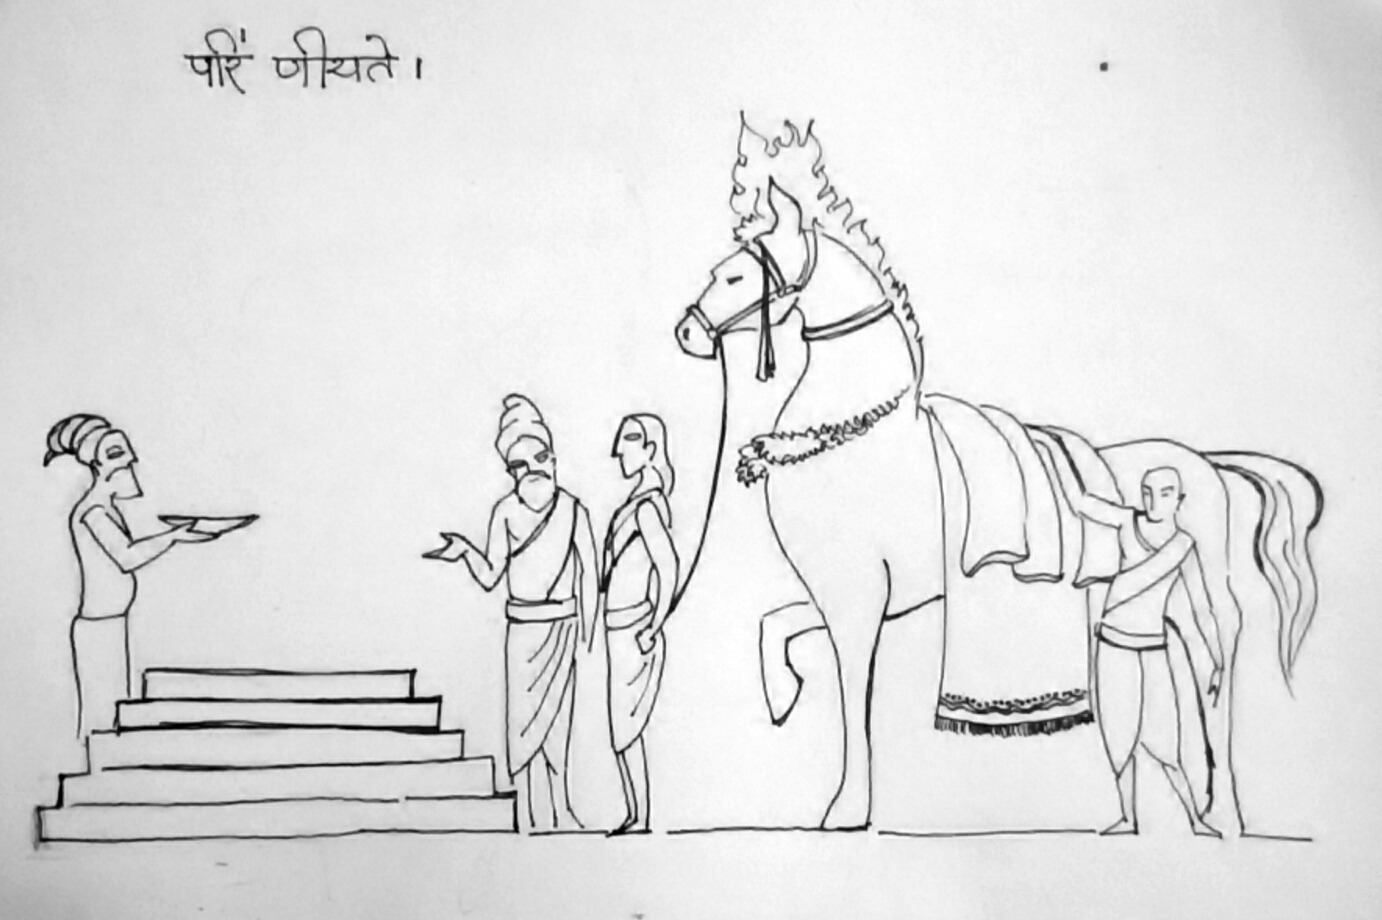 परि॑ णीयते।